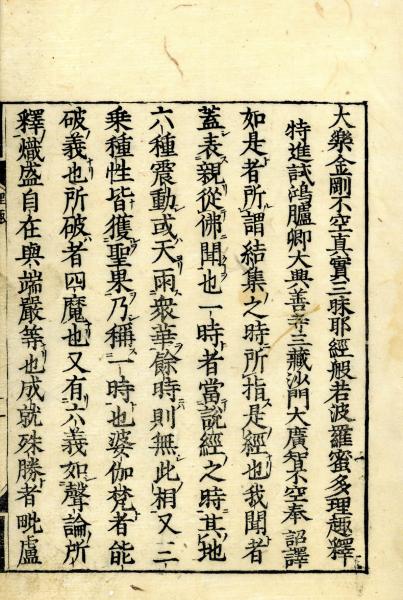 大樂金剛不空真實三昧耶經般若波羅蜜多理趣釋
特進試鴻臚卿大興善寺三藏沙門大廣智不空奉 詔譯
如是者所謂結集之時所指是經也我聞者
蓋表親從佛聞也一時者當說經之時其地
六種震動或天雨衆華餘時則無此相又三
乗種性皆獲聖果乃稱一時也婆伽梵者能
破義也所破者四魔也又有六義如聲論所
釋熾盛自在與端嚴等也成就殊勝者毗盧